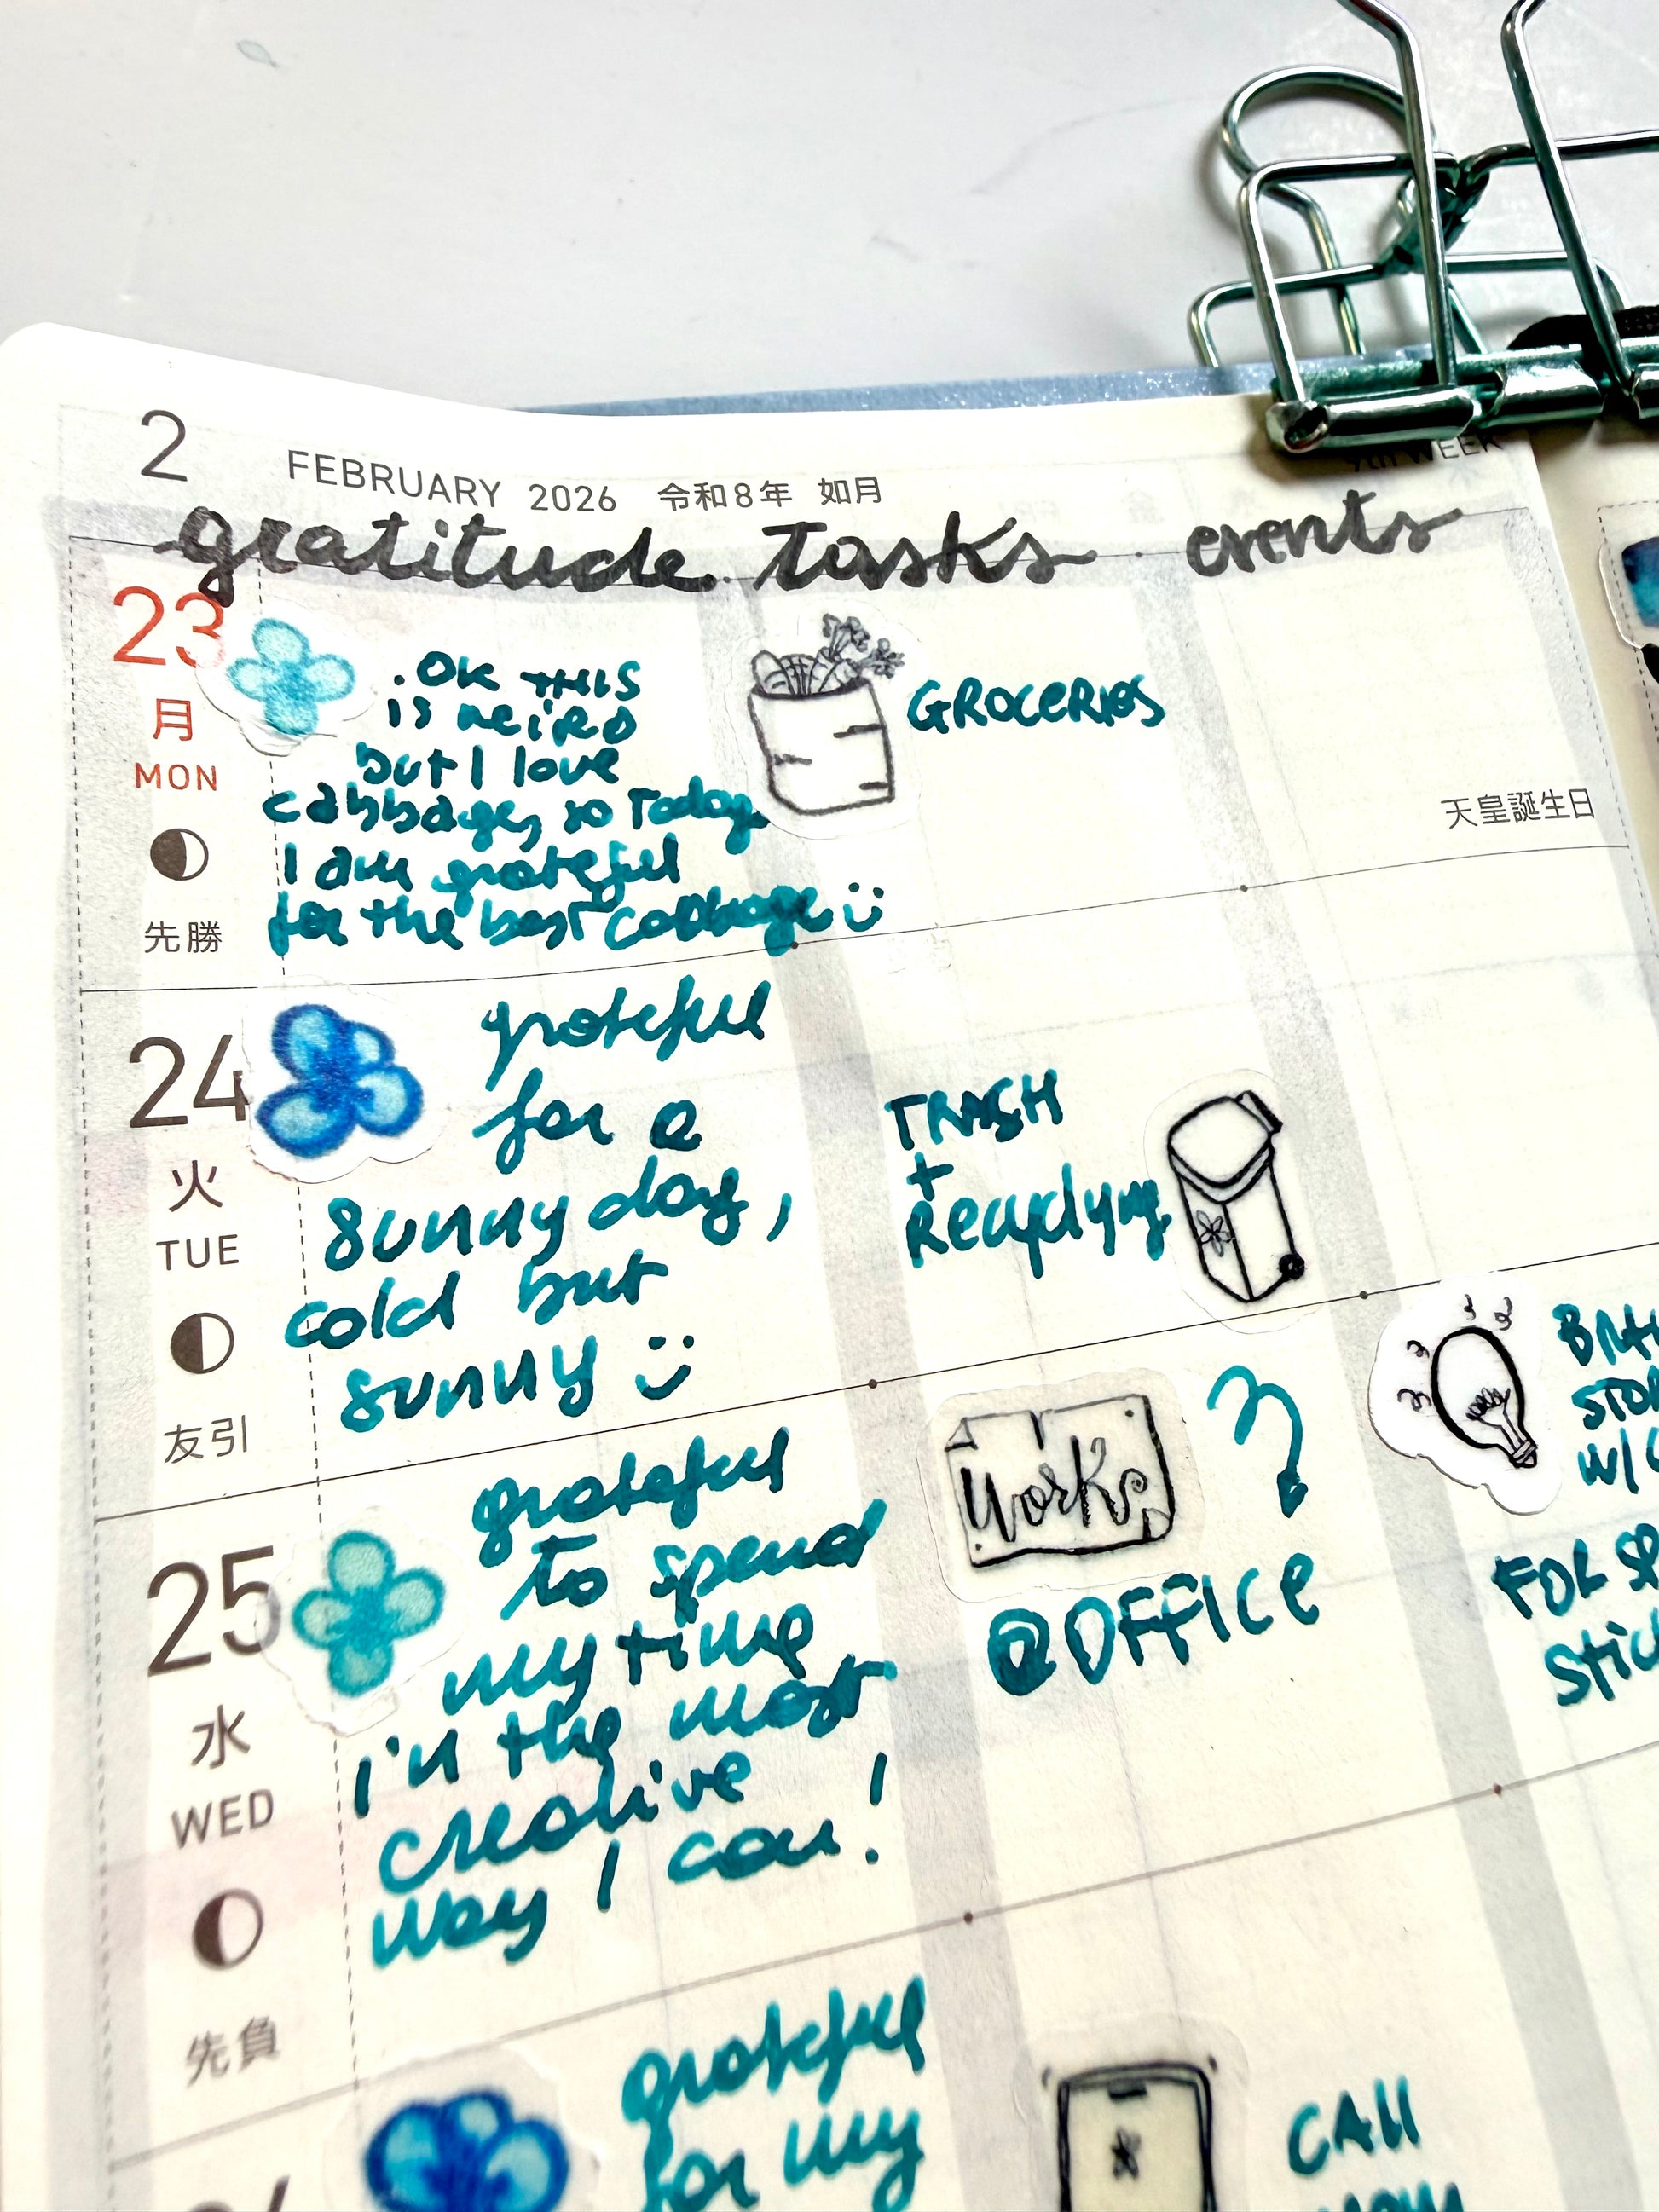 2 FEBRUARY 2026 令和8年 如月
9th WEEK
gratitude tasks events
23
月
MON
先勝
.OK THIS
is weird
but I love
cabbage, so Today
I am grateful
for the best cabbage :)
GROCERIES
天皇誕生日
24
火
TUE
友引
grateful
for a
sunny day,
cold but
sunny :)
TRASH
+
Recyclyng
25
水
WED
先負
grateful
to spend
my time
in the most
creative
way I can!
Work
@OFFICE
W/
FOR
grateful
for my
CAll